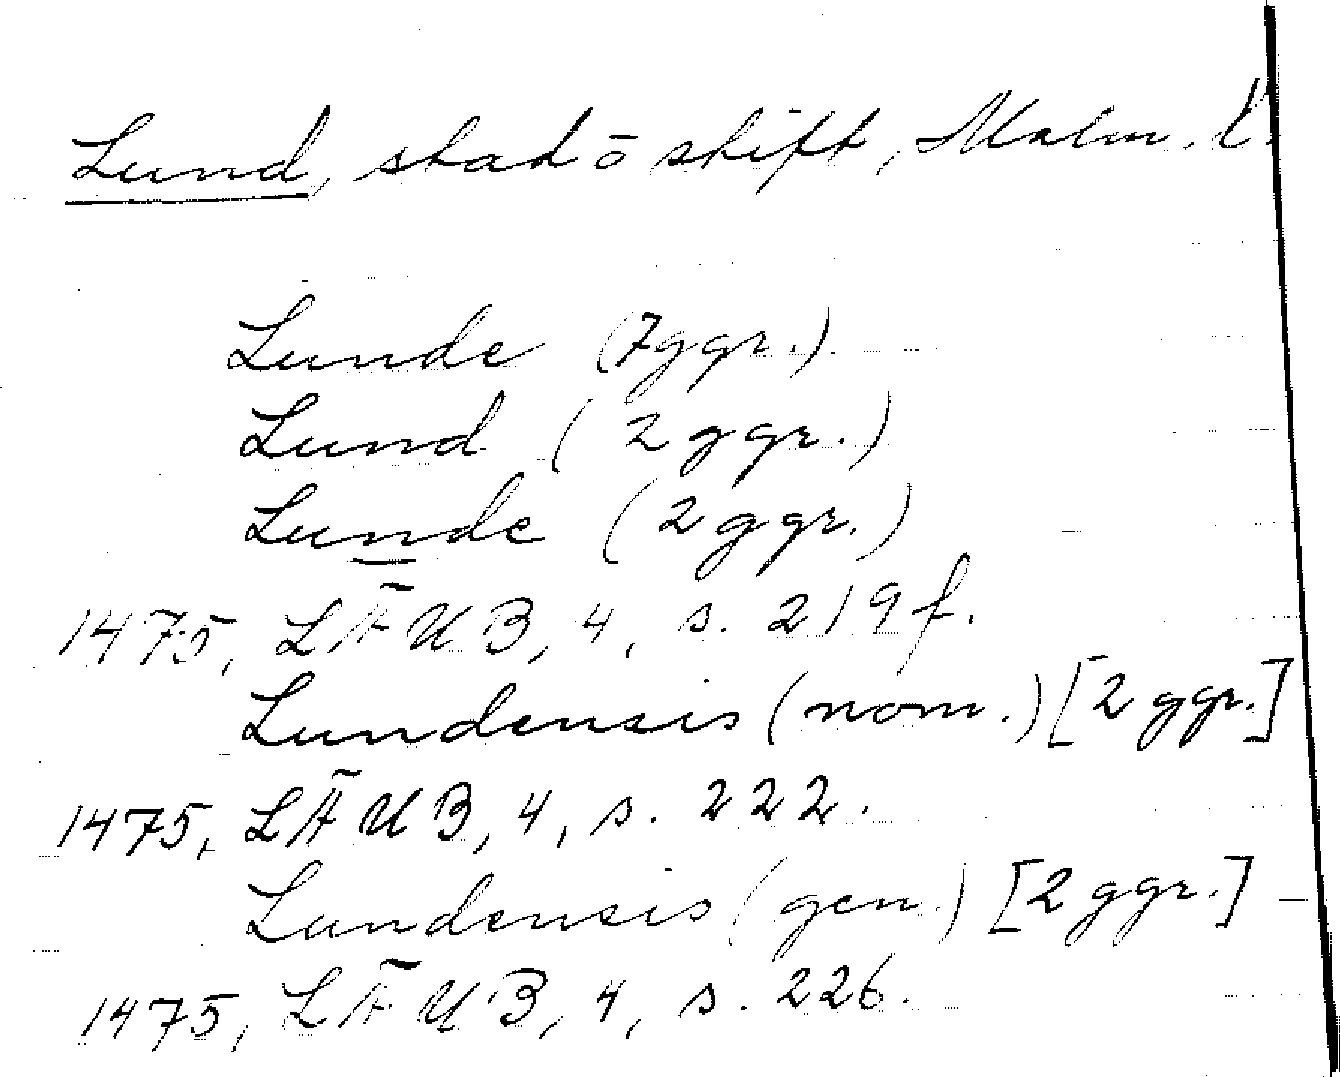 Lund, stad ō stift, Malm. l.
Lunde (7 ggr.)
Lund (2 ggr.)
Lunde (2 ggr.)
1475, LÄUB, 4, s. 219 f.
Lundensis (nom.) [2 ggr.]
1475, LÄUB, 4, s. 222.
Lundensis (gen.) [2 ggr.]
1475, LÄUB, 4, s. 226.